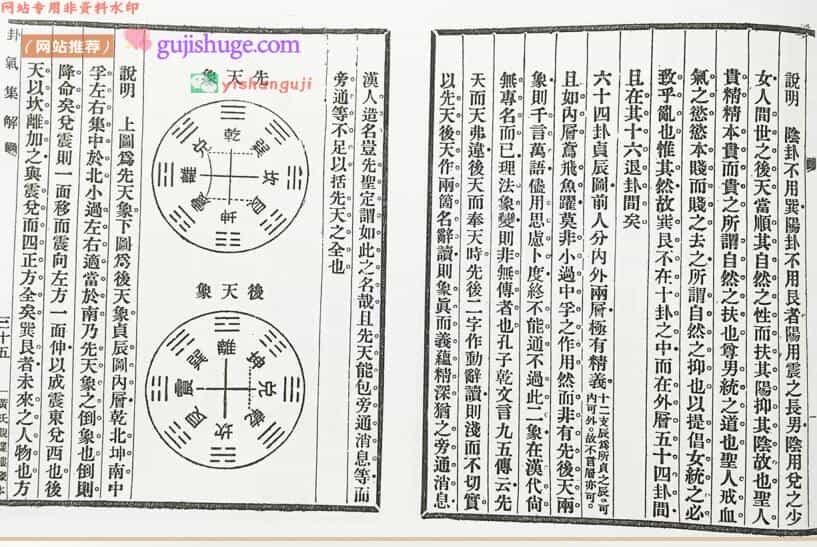 网站专用非资料水印
(网站推荐)
gujishuge.com
yishanguji
說明 陰卦不用巽陽卦不用艮者陽用震之長男陰用兌之少
女人間世之後天當順其自然之性而扶其陽抑其陰故也聖人
貴精精本貴而貴之所謂自然之扶也尊男統之道也聖人戒血
氣之慾慾本賤而賤之去之所謂自然之抑也以提倡女統之必
致乎亂也惟其然故巽艮不在十卦之中而在外層五十四卦間
且在其十六退卦間矣
六十四卦貞辰圖前人分內外兩層極有精義十二支辰為所貞之辰可內可外故不言層亦可
且如內層鳶飛魚躍莫非小過中孚之作用然而非有先後天兩
象則千言萬語儘用思慮卜度終不能通不過此二象在漢代尙
無專名而已理法象變則非無傳者也孔子乾文言九五傳云先
天而天弗違後天而奉天時先後二字作動辭讀則淺而不切實
以先天後天作兩箇名辭讀則象眞而義蘊精深猶之旁通消息
漢人造名豈先聖定謂如此之名哉且先天能包旁通消息等而
旁通等不足以括先天之全也
先天象
乾
巽
坎
艮
坤
震
離
兌
後天象
離
坤
兌
乾
坎
艮
震
巽
說明 上圖為先天象下圖為後天象貞辰圖內層乾北坤南中
孚左右集中於北小過左右適當於南乃先天象之倒象也倒則
降命矣兌震則一面移而震向左方一面伸以成震東兌西也後
天以坎離加之與震兌而四正方全矣巽艮者未來之人物也方
卦氣集解
三十五